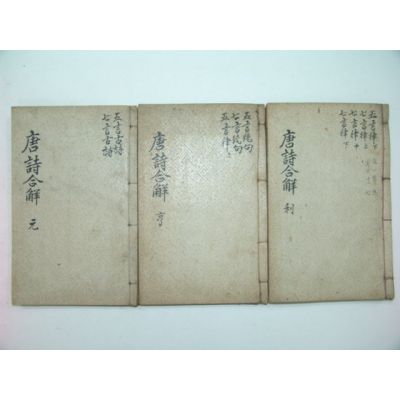 唐詩合解 元
五言古詩
七言古詩
唐詩合解 亨
五言絶句
七言絶句
五言律上
唐詩合解 利
五言律下
七言律上
七言律中
七言律下